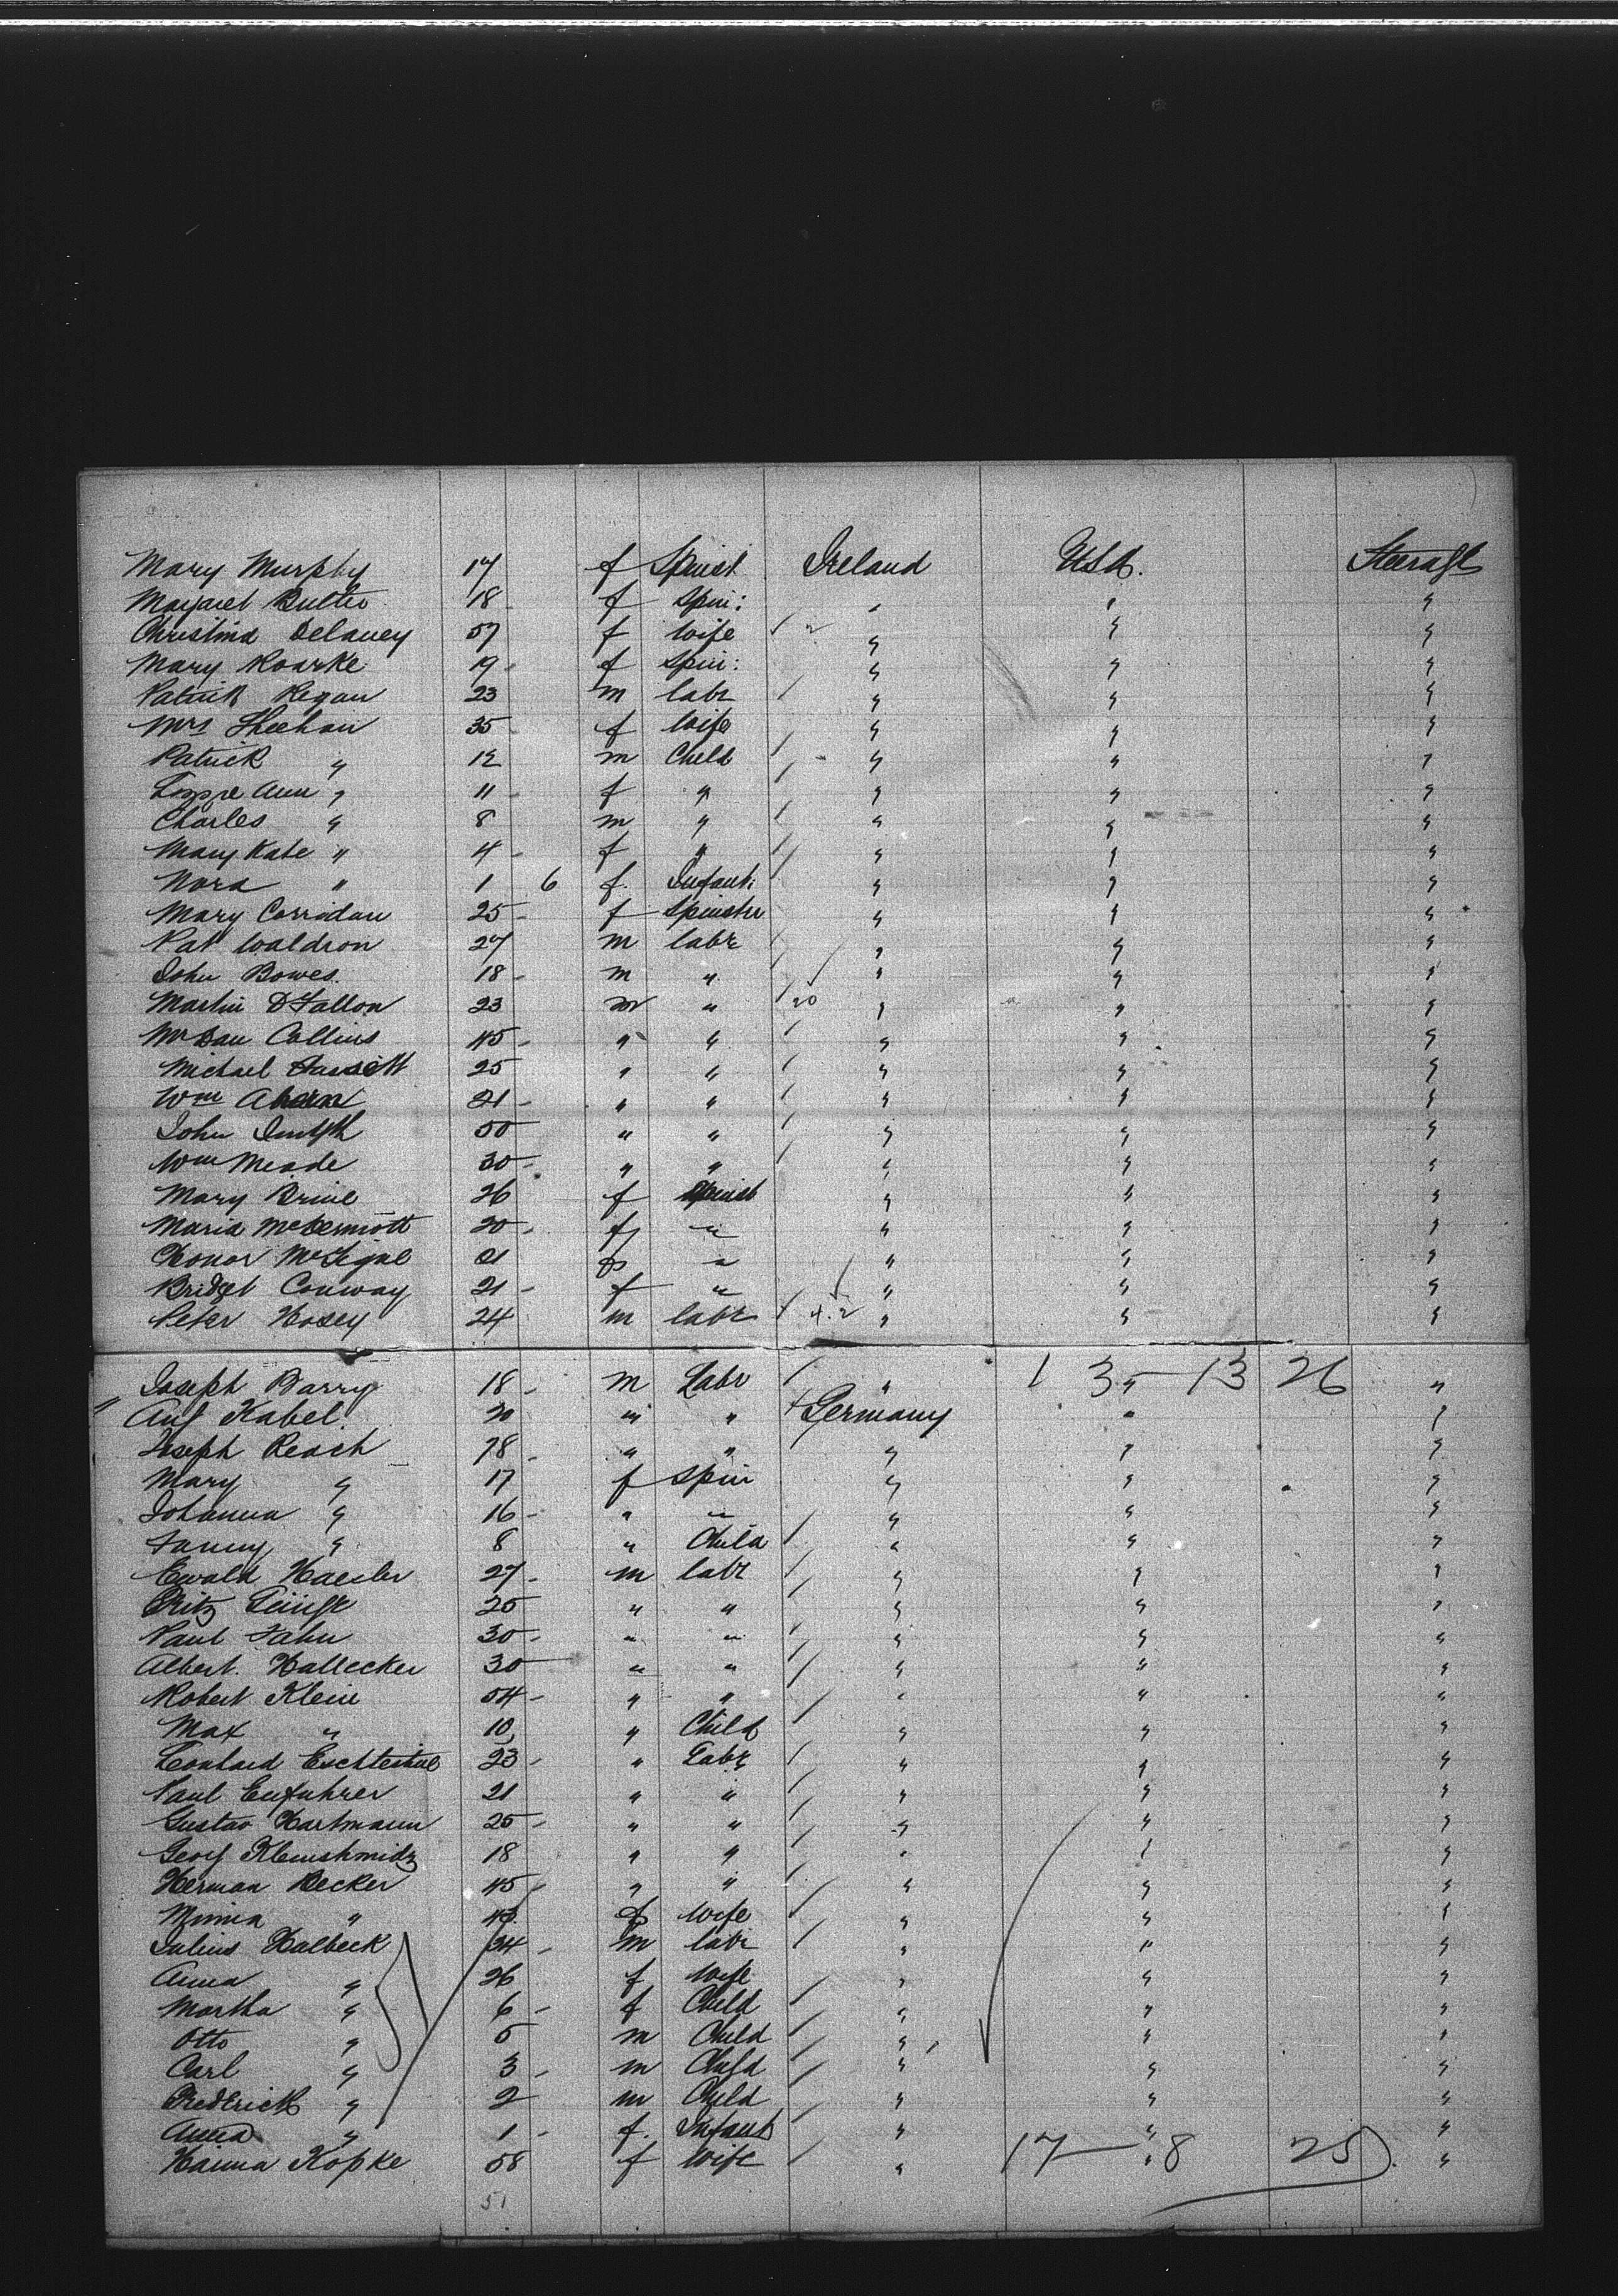 Mary Murphy 17 f Spinst Ireland USA. Steerage
Margaret Butler 18 - f Spin: " " "
Christina Delaney 57 f Wife " " "
Mary Roarke 19 - f Spin: " " "
Patrick Regan 23 m labr " " "
Mrs Sheehan 35 - f Wife " " "
Patrick " 12 m Child " " "
Lizzie Ann " 11 - f " " " "
Charles " 8 m " " " "
Mary Kate " 4 - f " " " "
Nora " 1 6 f. Infant: " " "
Mary Corridan 25 - f Spinster " " "
Pat Waldron 27 m labr " " "
John Bowes. 18 - m " " " "
Martin D Fallon 23 m " 20 " " "
Mr Dan Collins 45 - " " " " "
Michael 25 " " " " "
Wm Ahern 21 - " " " " "
John Smyth 50 " " " " "
Wm Meade 30 - " " " " "
Mary Brine 26 f Spinst " " "
Maria McDermott 20 - f " " " "
Honor 21 f " " " "
Bridget Conway 21 - f " " " "
Peter Hosey 24 m labr 4.2 " " "
Joseph Barry 18 - m Labr " 1 3 " - 13 26 "
" Aug Kabel 20 m " Germany " "
Joseph Reach 78 - " " " " "
Mary " 17 f Spin " " "
Johanna " 16 - " " " " "
Fanny " 8 " Child " " "
Ewald 27 - m labr " " "
Fritz 25 " " " " "
Paul Jahn 30 - " " " " "
Albert. Hallecker 30 " " " " "
Robert Klein 54 - " " " " "
Max " 10 " Child " " "
23 - " Labr " " "
Paul 21 " " " " "
Gustav Hartmann 25 - " " " " "
Georg Kleinshmidz 18 " " " " "
Herman Becker 45 " " " " "
Minna " 43. f Wife " " "
Julius Halbeck 34 - m labr " " "
Anna " 26 f Wife " " "
Martha " 6 - f Child " " "
Otto " 5 m Child " " "
Carl " 3 - m Child " " "
Frederick " 2 m Child " " "
Anna " 1 - f. Infant " " "
Hanna Kopke 58 f Wife " 17 - " 8 25 "
51